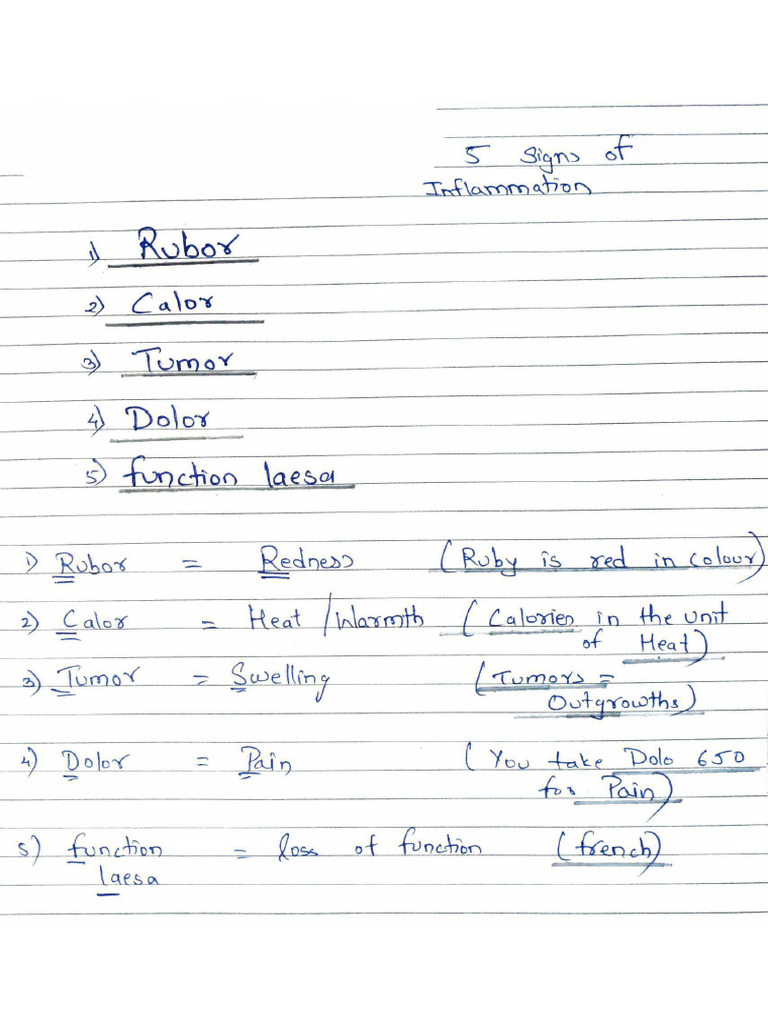 5 Signs of
Inflammation
1) Rubor
2) Calor
3) Tumor
4) Dolor
5) function laesa
1) Rubor = Redness (Ruby is red in colour)
2) Calor = Heat / Warmth (Calories in the unit
of Heat)
3) Tumor = Swelling (Tumors =
Outgrowths)
4) Dolor = Pain (You take Dolo 650
for Pain)
5) function = loss of function (french)
laesa